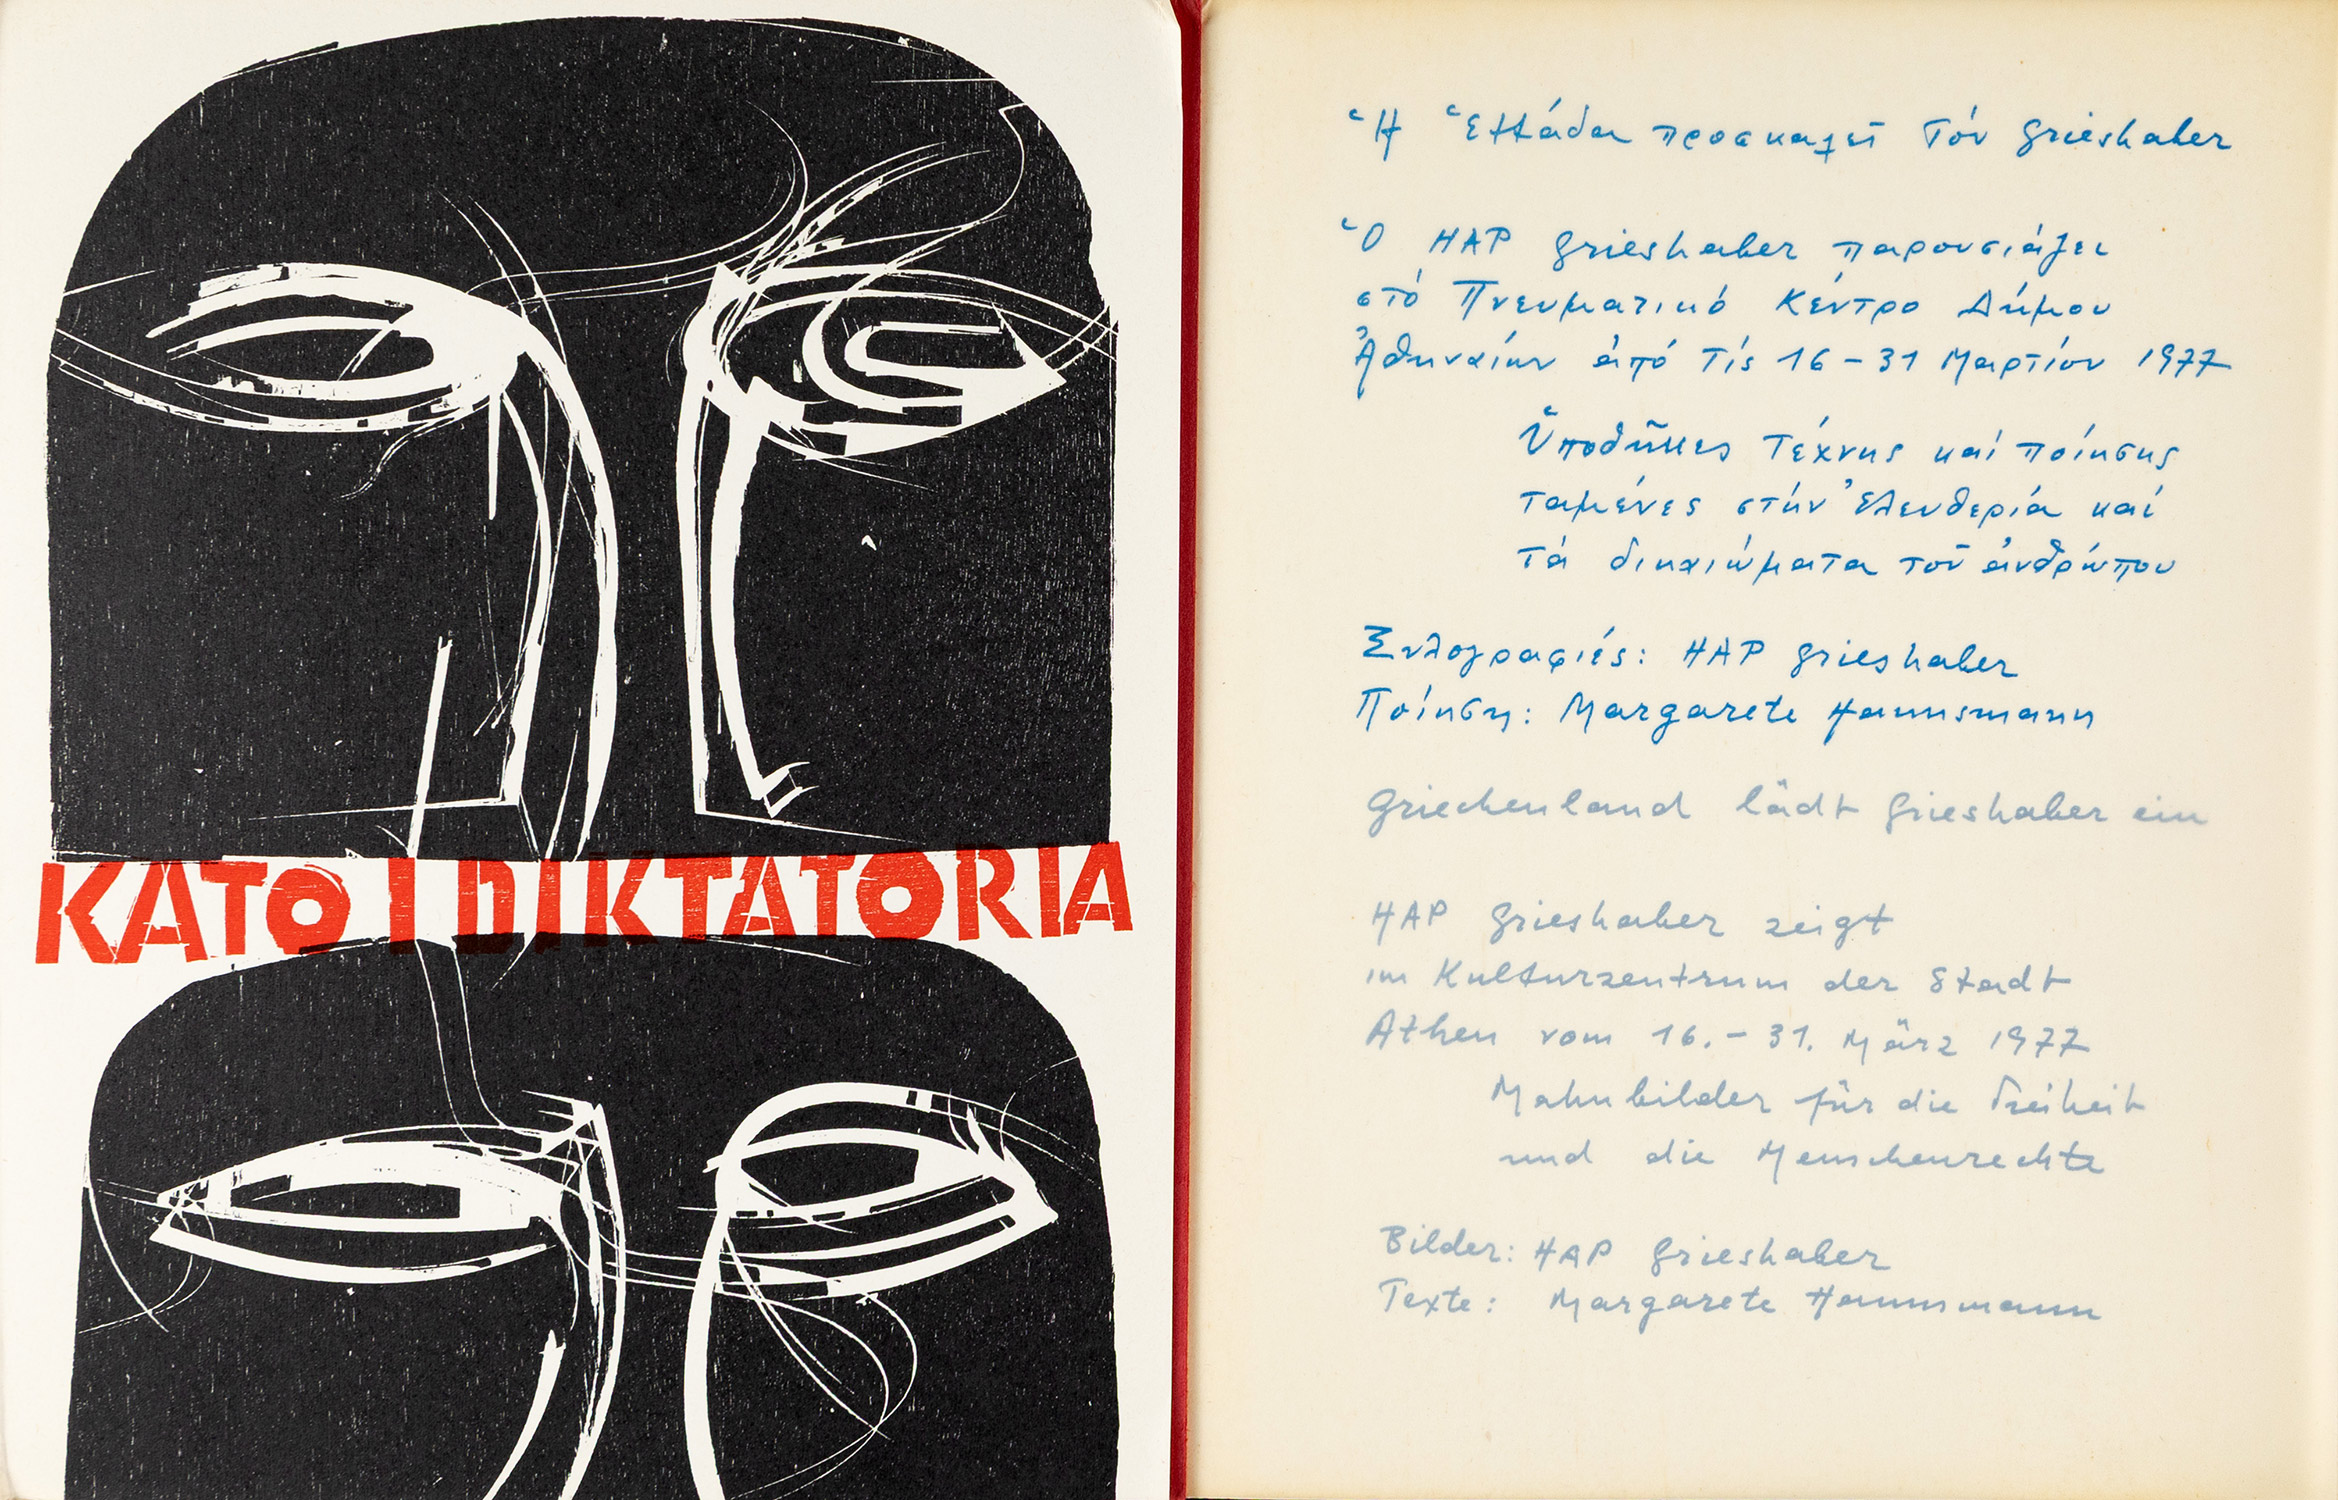 KATO I DIKTATORIA
Ἡ Ἑλλάδα προσκαλεῖ τόν Grieshaber
Ὁ HAP Grieshaber παρουσιάζει
στό Πνευματικό Κέντρο Δήμου
Ἀθηναίων ἀπό τίς 16 - 31 Μαρτίου 1977
Ὑποθῆκες τέχνης καί ποίησης
ταμένες στήν Ἐλευθερία καί
τά δικαιώματα τοῦ ἀνθρώπου
Ξυλογραφιές: HAP Grieshaber
Ποίηση: Margarete Hannsmann
Griechenland lädt Grieshaber ein
HAP Grieshaber zeigt
im Kulturzentrum der Stadt
Athen vom 16. - 31. März 1977
Mahnbilder für die Freiheit
und die Menschenrechte
Bilder: HAP Grieshaber
Texte: Margarete Hannsmann